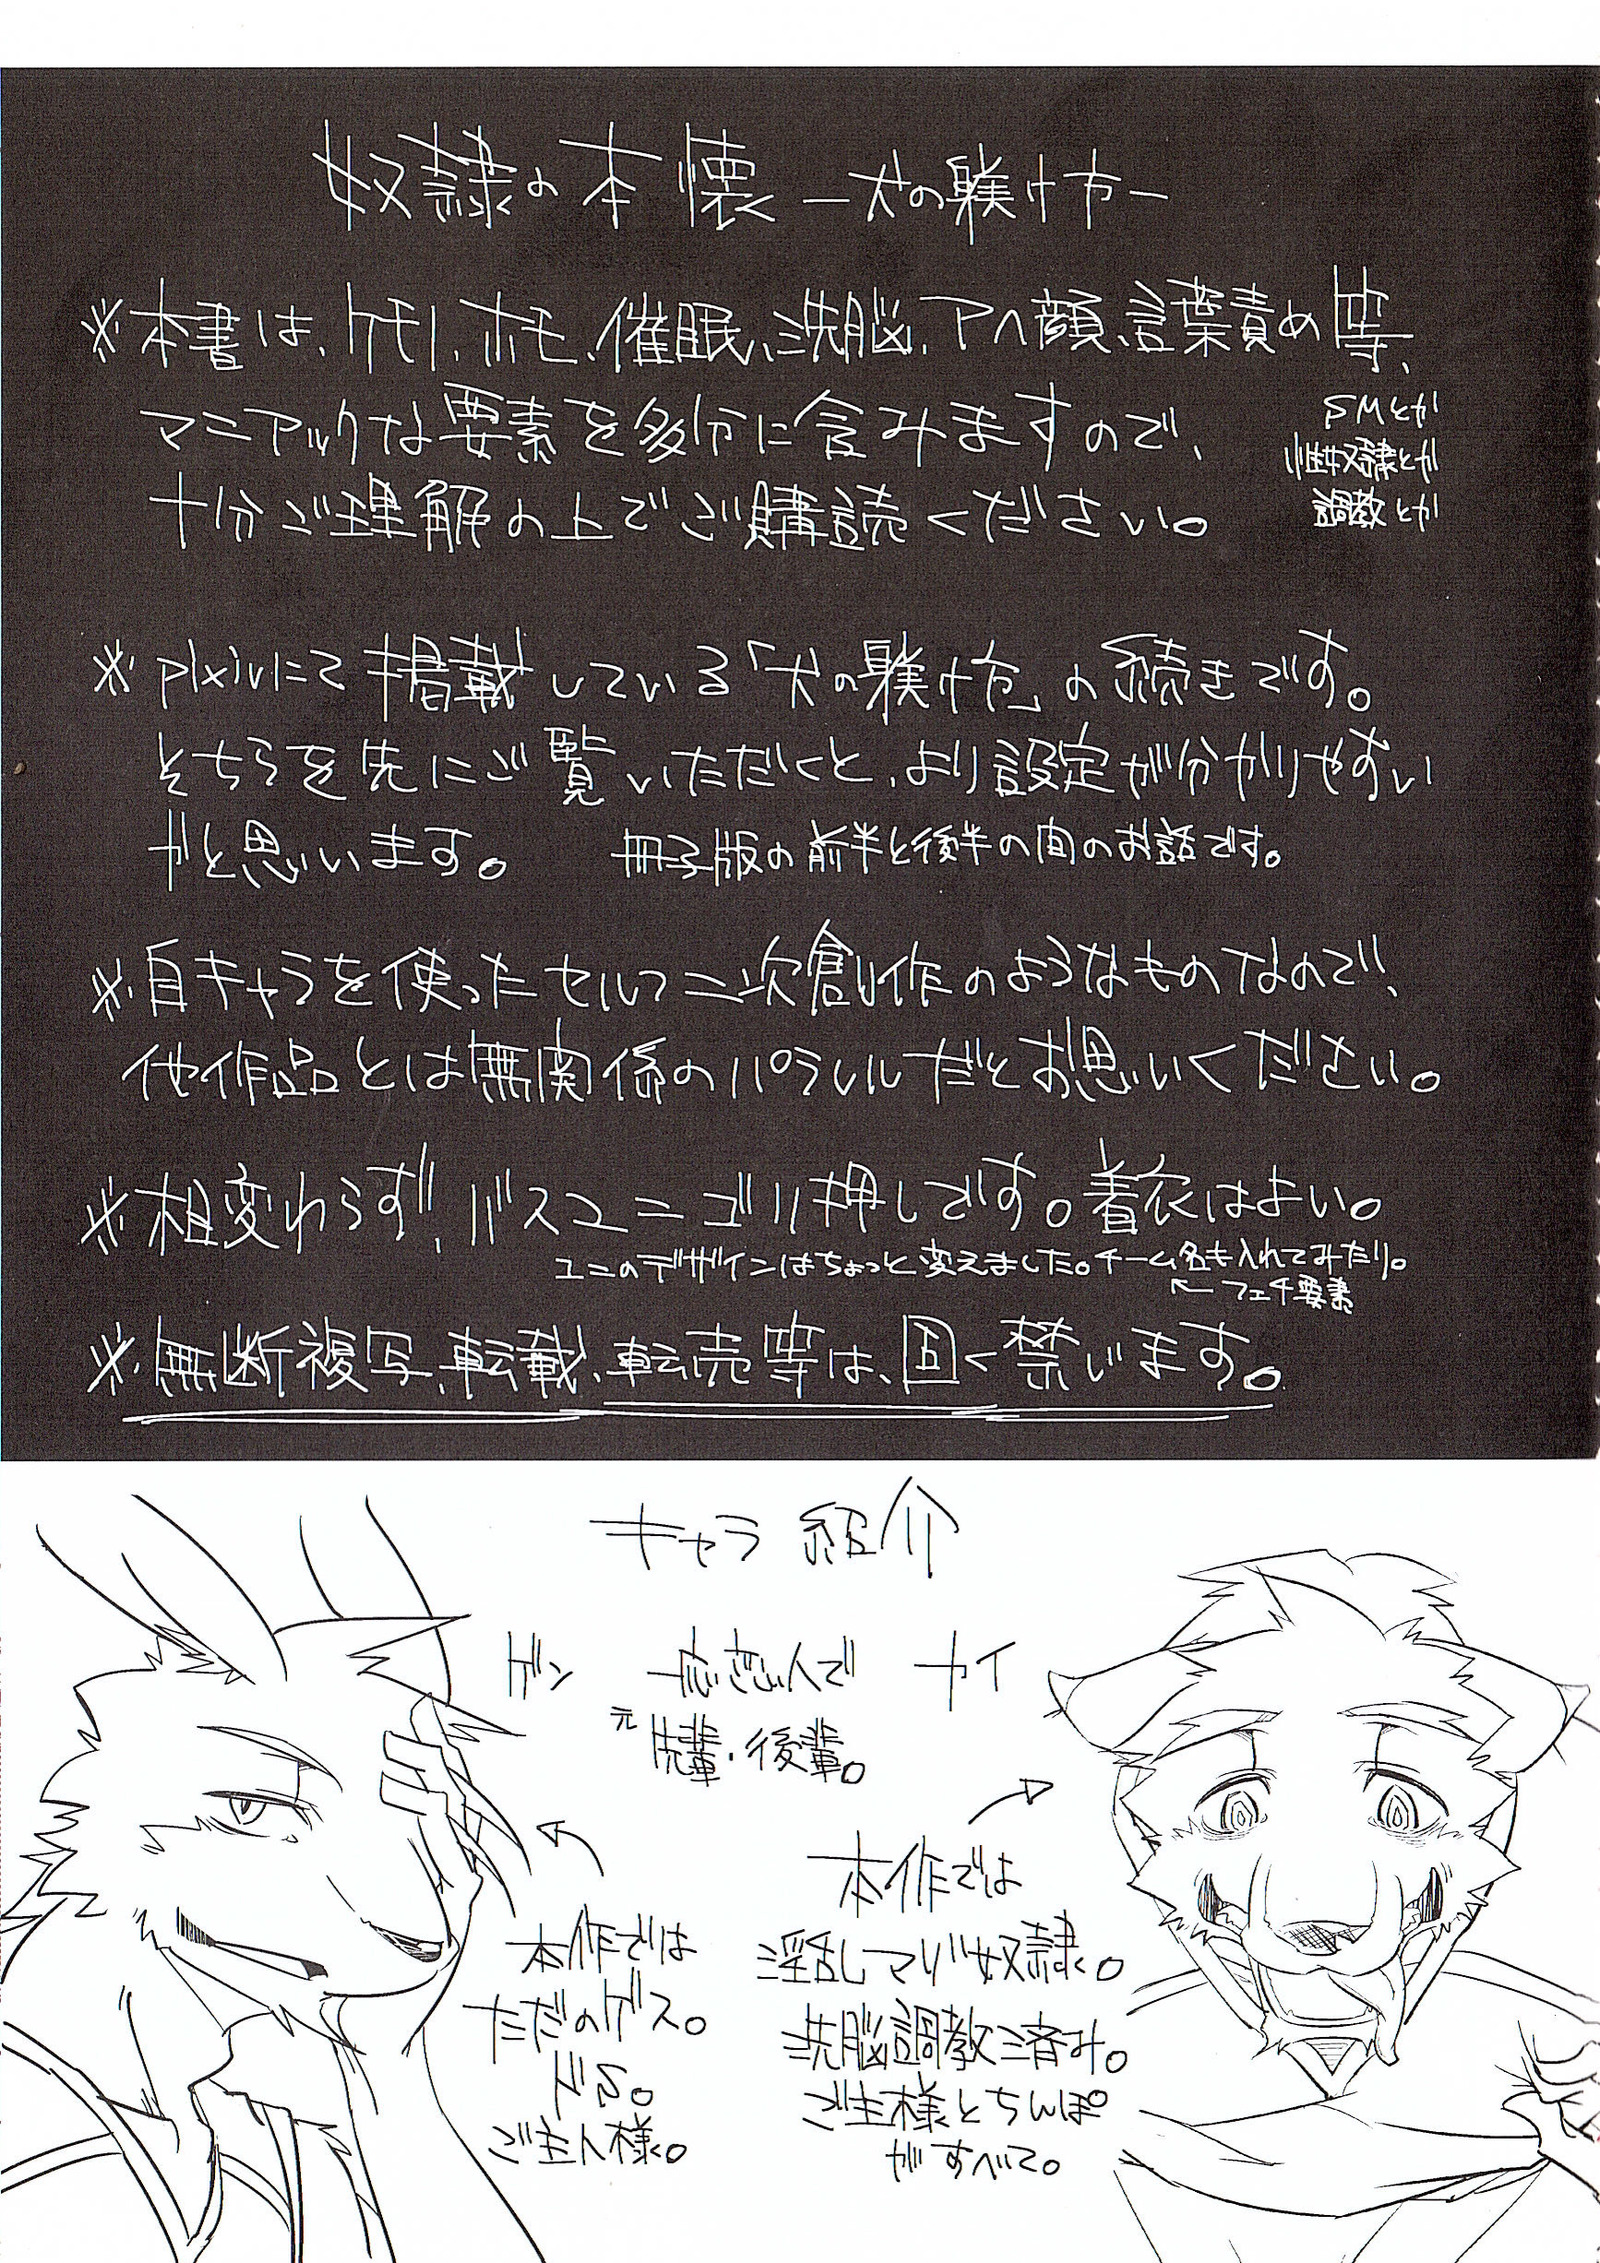 奴隷の本懐 ―犬の躾け方―
※本書は、ケモノ、ホモ、催眠、洗脳、アヘ顔、言葉責め等、
マニアックな要素を多分に含みますので、
SMとか
性奴隷とか
調教とか
十分ご理解の上でご購読ください。
※pixivにて掲載している「犬の躾け方」の続きです。
そちらを先にご覧いただくと、より設定が分かりやすい
かと思います。
冊子版の前半と後半の間のお話です。
※自キャラを使ったセルフ二次創作のようなものなので、
他作品とは無関係のパラレルだとお思いください。
※相変わらず、バスユニゴリ押しです。着衣はよい。
ユニのデザインはちょっと変えました。チーム名も入れてみたり。
←フェチ要素
※無断複写、転載、転売等は、固く禁じます。
キャラ紹介
ゲン
一応恋人で
元先輩・後輩。
カイ
本作では
ただのゲス。
ドS。
ご主人様。
本作では
淫乱しマゾ奴隷。
洗脳調教済み。
ご主様とちんぽ
がすべて。